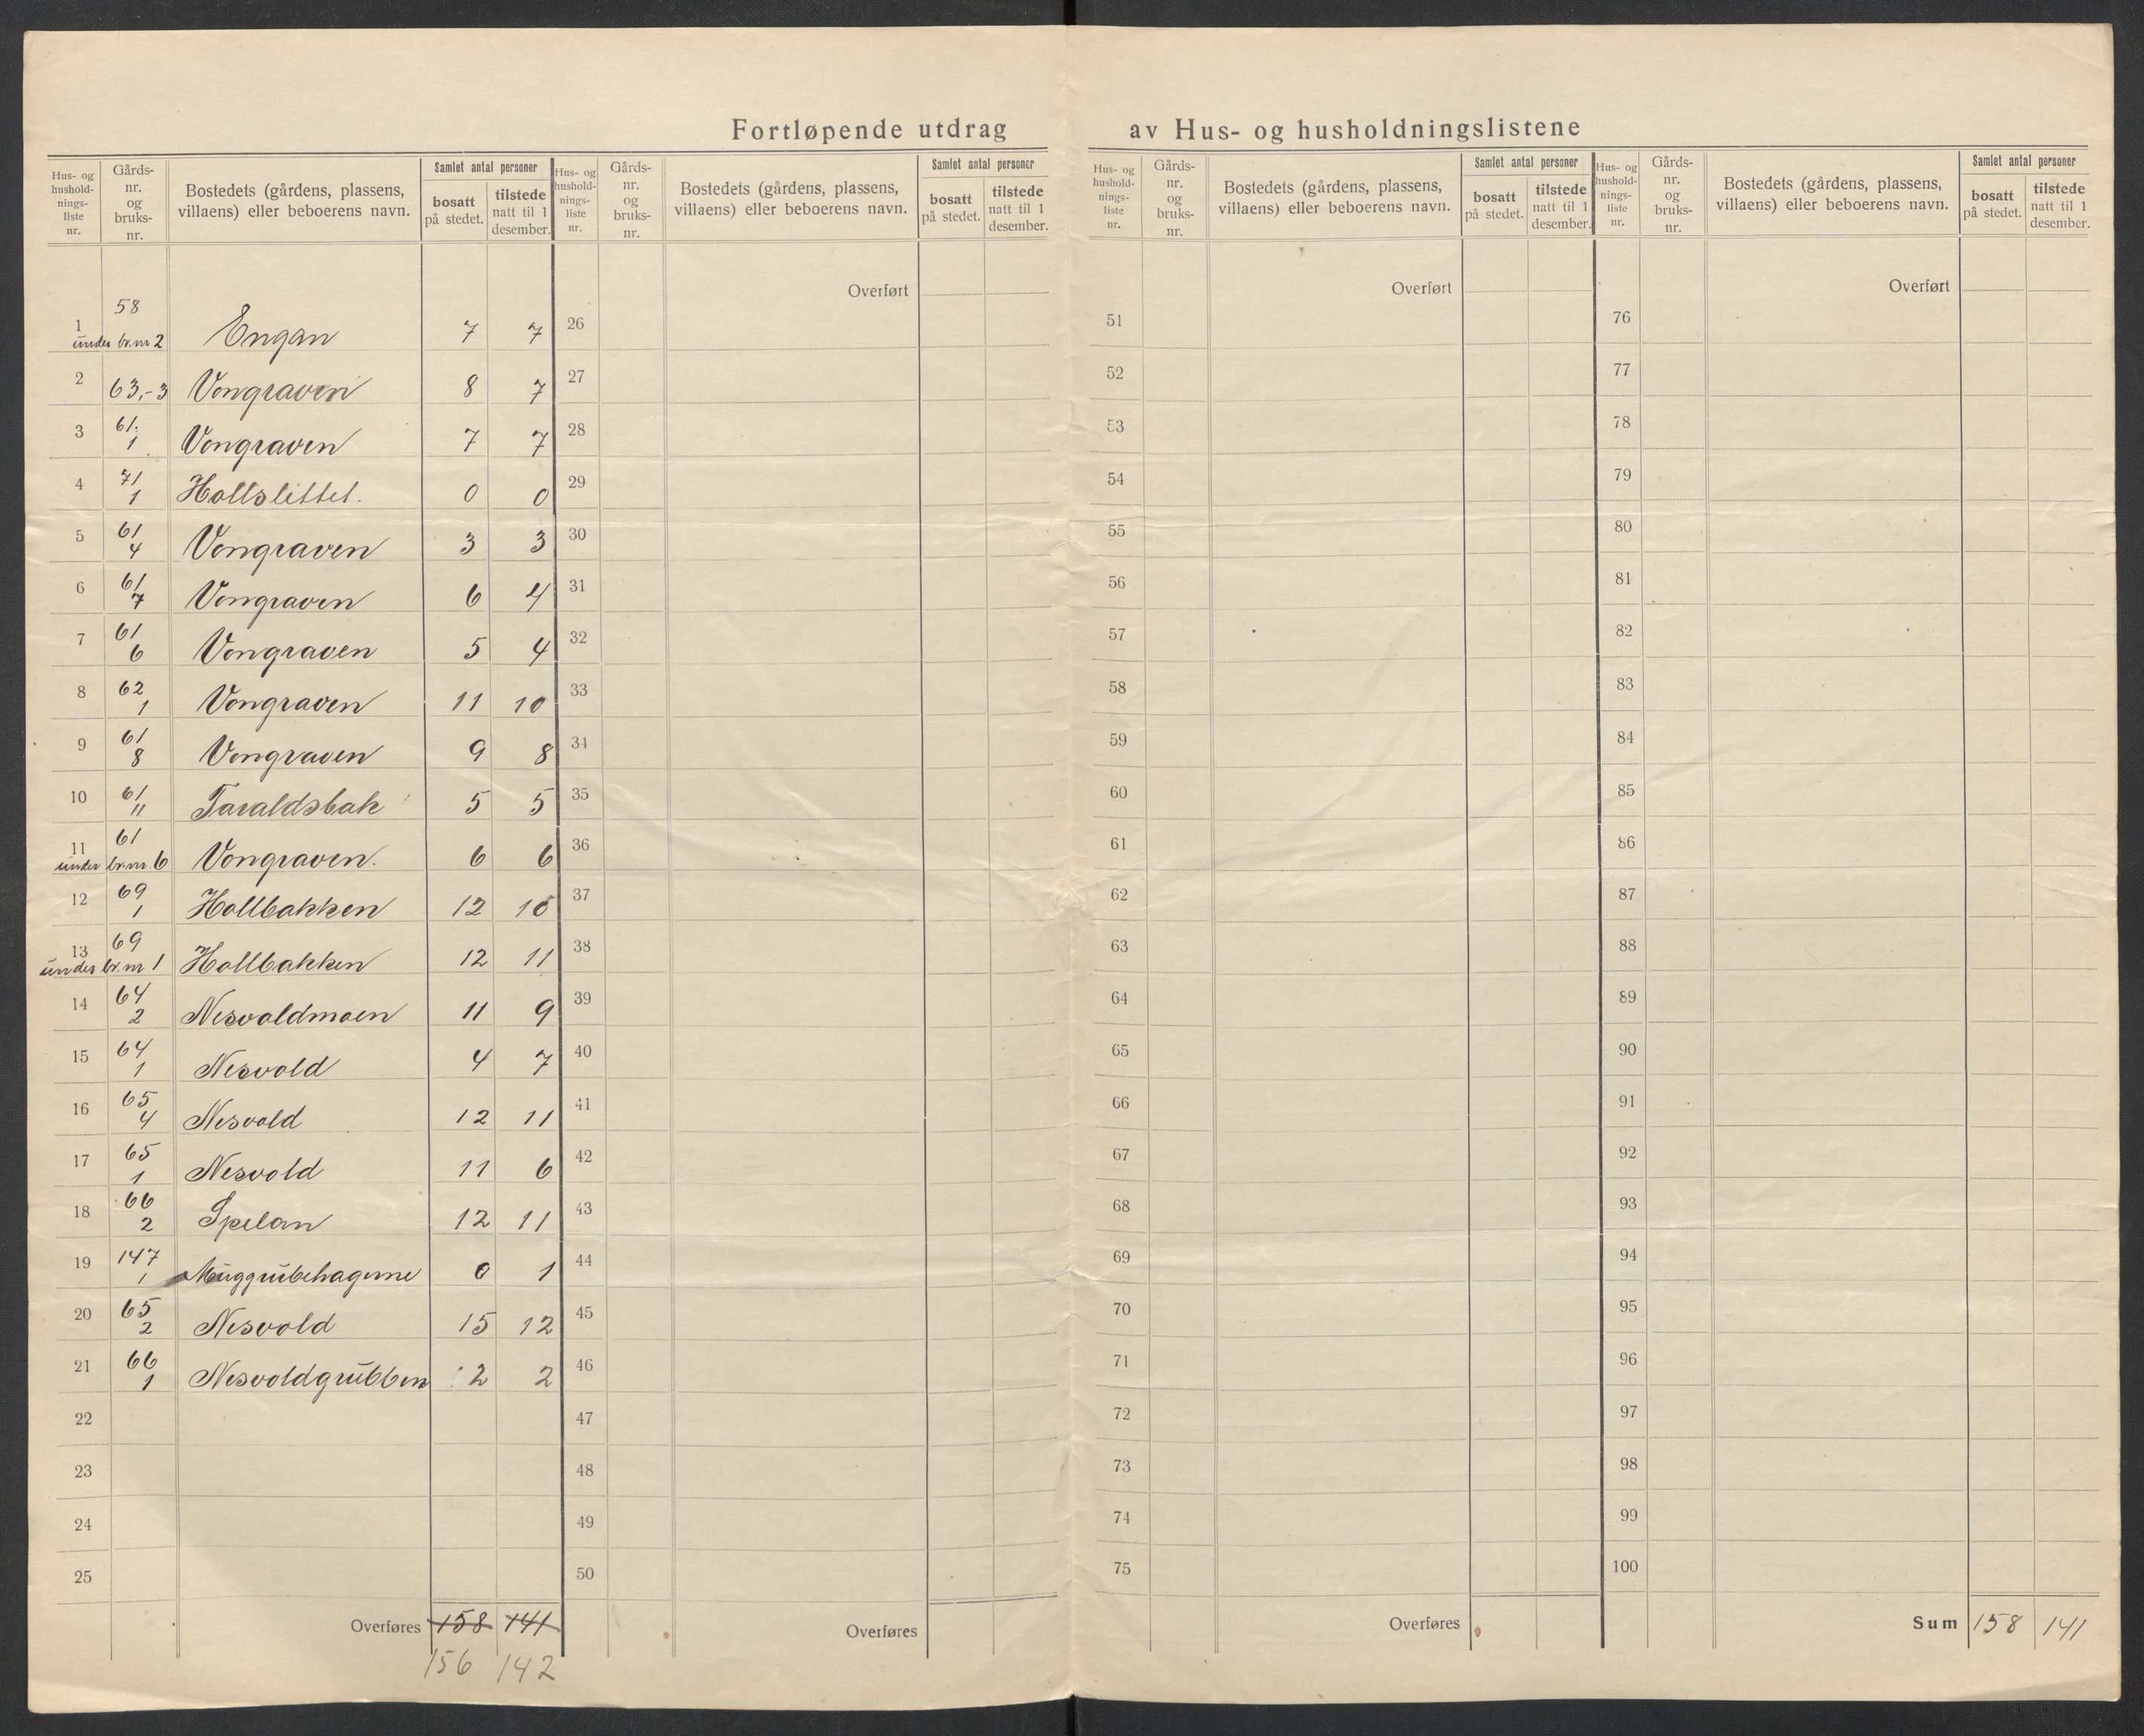 Fortløpende utdrag av Hus- og husholdningslistene
Hus- og hushold- nings- liste nr. | Gårds- nr. og bruks- nr. | Bostedets (gårdens, plassens, villaens) eller beboerens navn. | Samlet antal personer | bosatt på stedet. | tilstede natt til 1 desember.
Hus- og hushold- nings- liste nr. | Gårds- nr. og bruks- nr. | Bostedets (gårdens, plassens, villaens) eller beboerens navn. | Samlet antal personer | bosatt på stedet. | tilstede natt til 1 desember.
Hus- og hushold- nings- liste nr. | Gårds- nr. og bruks- nr. | Bostedets (gårdens, plassens, villaens) eller beboerens navn. | Samlet antal personer | bosatt på stedet. | tilstede natt til 1 desember.
Hus- og hushold- nings- liste nr. | Gårds- nr. og bruks- nr. | Bostedets (gårdens, plassens, villaens) eller beboerens navn. | Samlet antal personer | bosatt på stedet. | tilstede natt til 1 desember.
Overført Overført Overført
1 58 under br.nr 2 Engan 7 7 26 51 76
2 63,-3 Vongraven 8 7 27 52 77
3 61. 1 Vongraven 7 7 28 53 78
4 71 1 Hollslittet. 0 0 29 54 79
5 61 4 Vongraven 3 3 30 55 80
6 61 7 Vongraven 6 4 31 56 81
7 61 6 Vongraven 5 4 32 57 82
8 62 1 Vongraven 11 10 33 58 83
9 61 8 Vongraven 9 8 34 59 84
10 61 11 Taraldsbak 5 5 35 60 85
11 61 under br.nr. 6 Vongraven. 6 6 36 61 86
12 69 1 Hollbakken 12 10 37 62 87
13 69 under br.nr 1 Hollbakken 12 11 38 63 88
14 64 2 Nesvoldmoen 11 9 39 64 89
15 64 1 Nesvold 4 7 40 65 90
16 65 4 Nesvold 12 11 41 66 91
17 65 1 Nesvold 11 6 42 67 92
18 66 2 Spelan 12 11 43 68 93
19 147 1 Muggrubehagerne 0 1 44 69 94
20 65 2 Nesvold 15 12 45 70 95
21 66 1 Nesvoldgrubben 2 2 46 71 96
22 47 72 97
23 48 73 98
24 49 74 99
25 50 75 100
Overføres 158 141 Overføres Overføres Sum 158 141
156 142